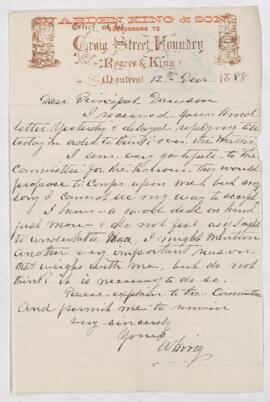 Office of the
Warden King & Son
Successors to
Craig Street Foundry
Rogers & King
Montreal 12th Decr 1888
Dear Principal Dawson
I received your kind
letter yesterday & delayed replying till
today in order to think over the matter
I am very grateful to the
Committee for the honour they would
propose to confer upon me but am
sorry I cannot see my way to accept
I have a good deal on hand
just now & do not feel as if I ought
to undertake more, I might mention
another very important reason
that weighs with me, but do not
think it is necessary to do so.
Please explain to the Committee
and permit me to remain
very sincerely
Yours
W King